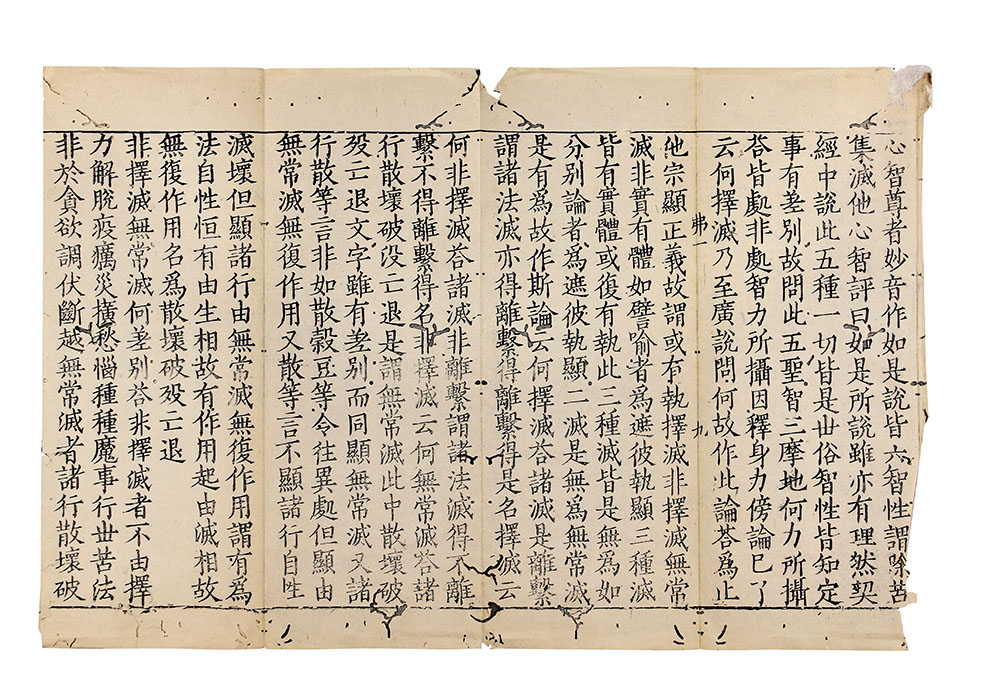 心智尊者妙音作如是說皆六智性謂除苦
集滅他心智評曰如是所說雖亦有理然契
經中說此五種一切皆是世俗智性皆知定
事有差別故問此五聖智三摩地何力所攝
荅皆處非處智力所攝因釋身力傍論已了
云何擇滅乃至廣說問何故作此論荅爲止
弗一 九
他宗顯正義故謂或有執擇滅非擇滅無常
滅非實有體如譬喻者爲遮彼執顯三種滅
皆有實體或復有執此三種滅皆是無爲如
分別論者爲遮彼執顯二滅是無爲無常滅
是有爲故作斯論云何擇滅荅諸滅是離繫
謂諸法滅亦得離繫得離繫得是名擇滅云
何非擇滅荅諸滅非離繫謂諸法滅得不離
繫不得離繫得名非擇滅云何無常滅荅諸
行散壞破没亡退是謂無常滅此中散壞破
歿亡退文字雖有差別而同顯無常滅又諸
行散等言非如散穀豆等令往異處但顯由
無常滅無復作用又散等言不顯諸行自性
滅壞但顯諸行由無常滅無復作用謂有爲
法自性恒有由生相故有作用起由滅相故
無復作用名爲散壞破歿亡退
非擇滅無常滅何差別荅非擇滅者不由擇
力解脫疫癘災橫愁惱種種魔事行世苦法
非於貪欲調伏斷越無常滅者諸行散壞破